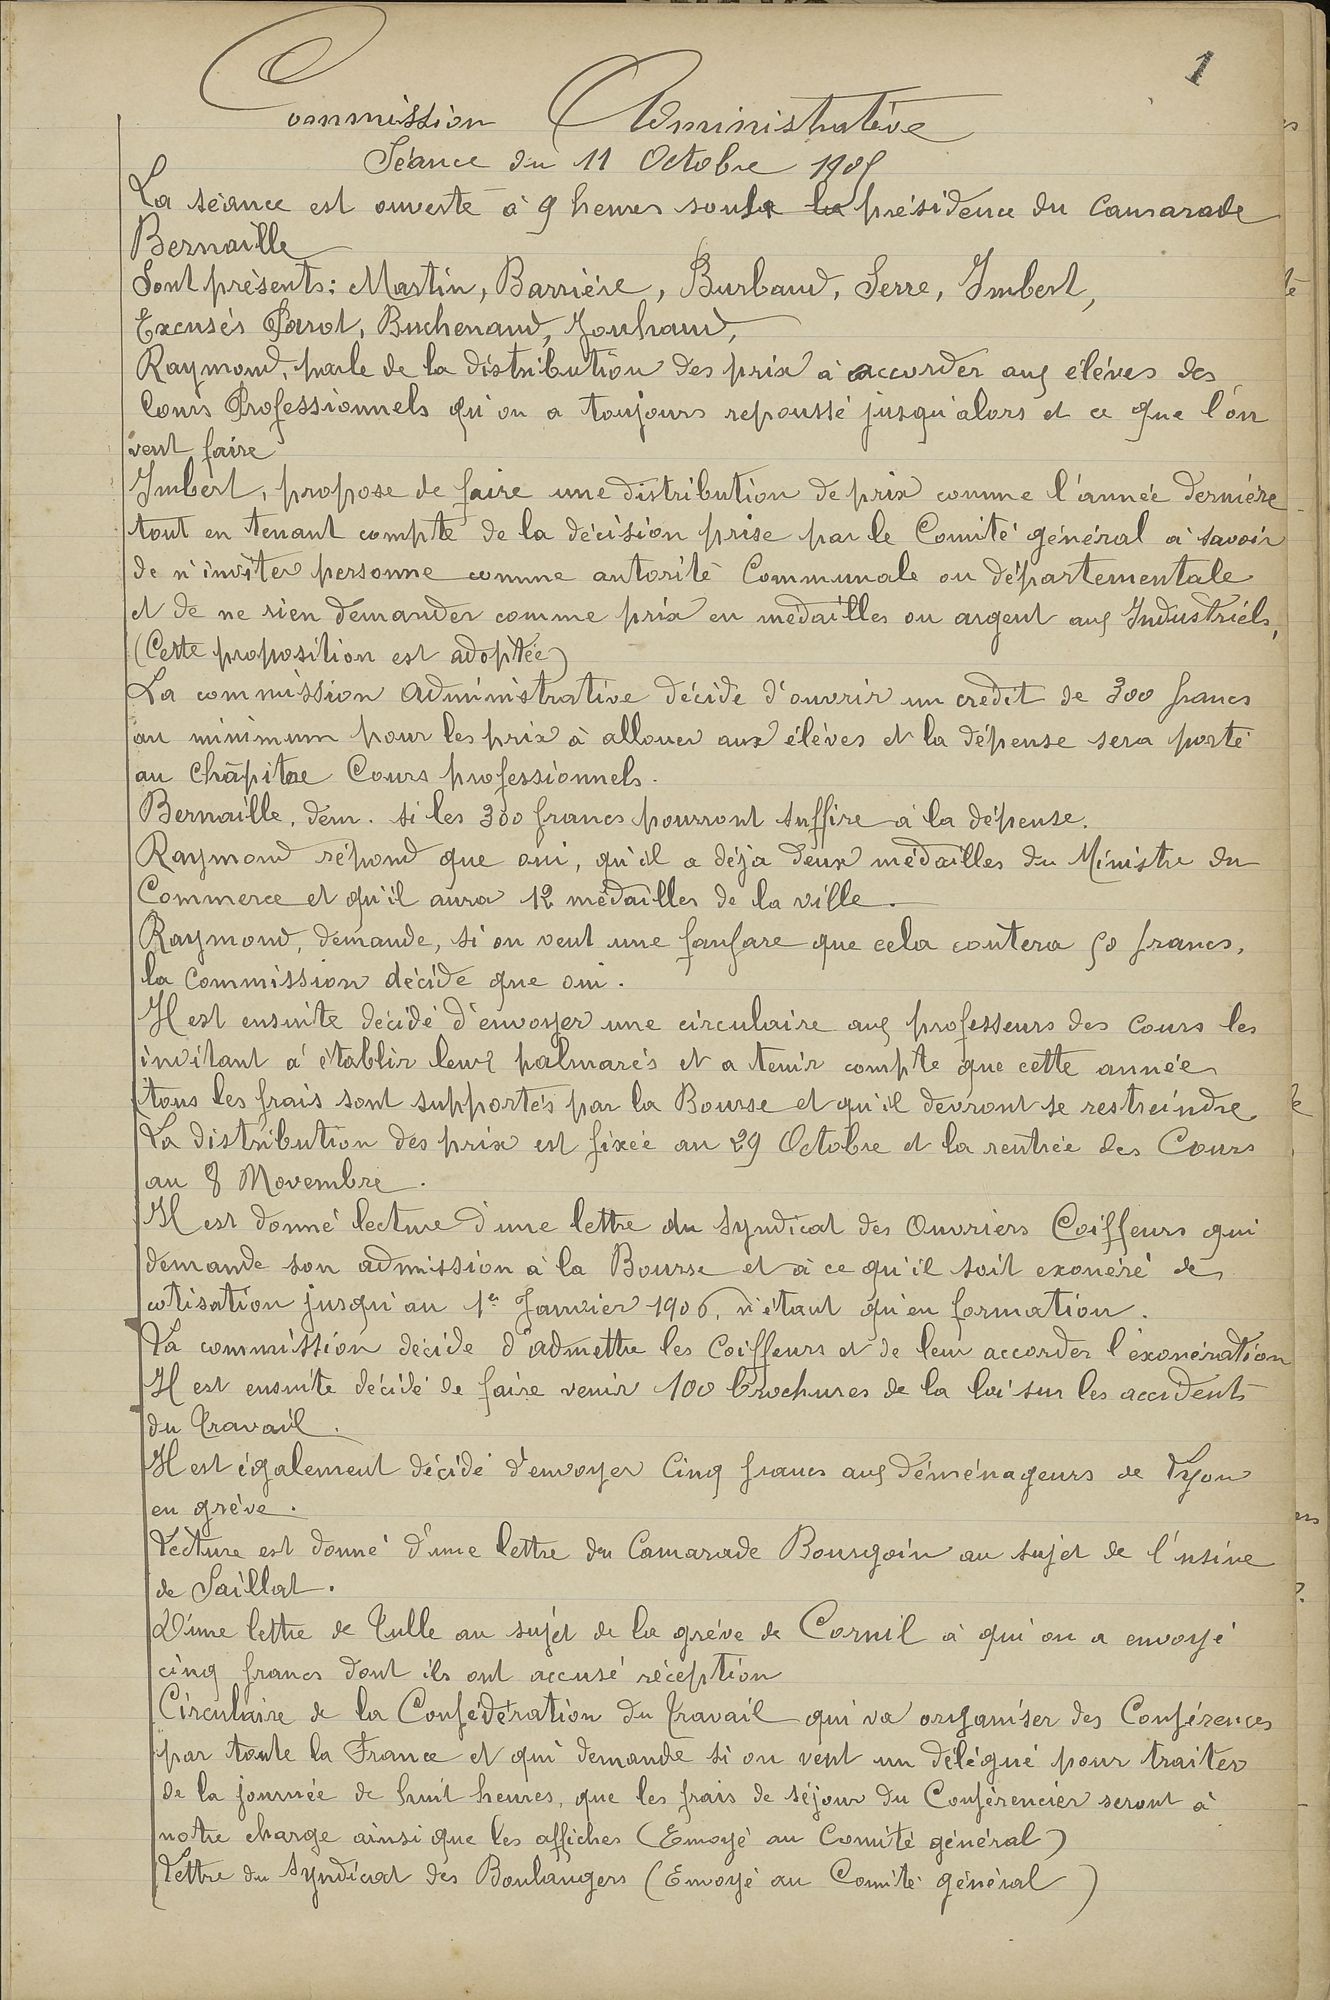 1
Commission Administrative
Séance du 11 Octobre 1905
La séance est ouverte à 9 heures sous la présidence du Camarade
Bernaille
Sont présents : Martin, Barrière, Burbaud, Serre, Imbert,
Excusés Parot, Buchenaud, Jouhaud,
Raymond, parle de la distribution des prix à accorder aux éléves des
Cours Professionnels qu'on a toujours repoussé jusqu'alors et ce que l'on
veut faire
Imbert, propose de faire une distribution de prix comme l'année derniére
tout en tenant compte de la décision prise par le Comité général à savoir
de n'inviter personne comme autorité Communale ou départementale
et de ne rien demander comme prix en médailles ou argent aux Industriels,
(Cette proposition est adoptée)
La commission administrative décide d'ouvrir un credit de 300 francs
au minimum pour les prix à allouer aux éléves et la dépense sera porté
au chapitre Cours professionnels.
Bernaille, dem. si les 300 francs pourront suffire à la dépense.
Raymond répond que oui, qu'il a déja deux médailles du Ministre du
Commerce et qu'il aura 12 médailles de la ville.
Raymond, demande, si on veut une fanfare que cela coutera 50 francs,
la commission décide que oui.
Il est ensuite décidé d'envoyer une circulaire aux professeurs des Cours les
invitant à établir leur palmarés et a tenir compte que cette année
tous les frais sont supportés par la Bourse et qu'il devront se restreindre
La distribution des prix est fixée au 29 Octobre et la rentrée des Cours
au 8 Novembre.
Il est donné lecture d'une lettre du Syndicat des Ouvriers Coiffeurs qui
demande son admission à la Bourse et à ce qu'il soit exonéré de
cotisation jusqu'au 1er Janvier 1906, n'étant qu'en formation.
La commission décide d'admettre les Coiffeurs et de leur accorder l'éxonération
Il est ensuite décidé de faire venir 100 brochures de la loi sur les accidents
du travail.
Il est également décidé d'envoyer Cinq francs aux déménageurs de Lyon
en gréve.
Lecture est donné d'une lettre du Camarade Bourgoin au sujet de l'usine
de Saillat.
D'une lettre de Tulle au sujet de la gréve de Cornil à qui on a envoyé
cinq francs dont ils ont accusé réception
Circulaire de la Confédération du Travail qui va organiser des Conférences
par toute la France et qui demande si on veut un délégué pour traiter
de la journée de huit heures, que les frais de séjour du Conférencier seront à
notre charge ainsi que les affiches (Envoyé au Comité général)
Lettre du Syndicat des Boulangers (Envoyé au Comité général)